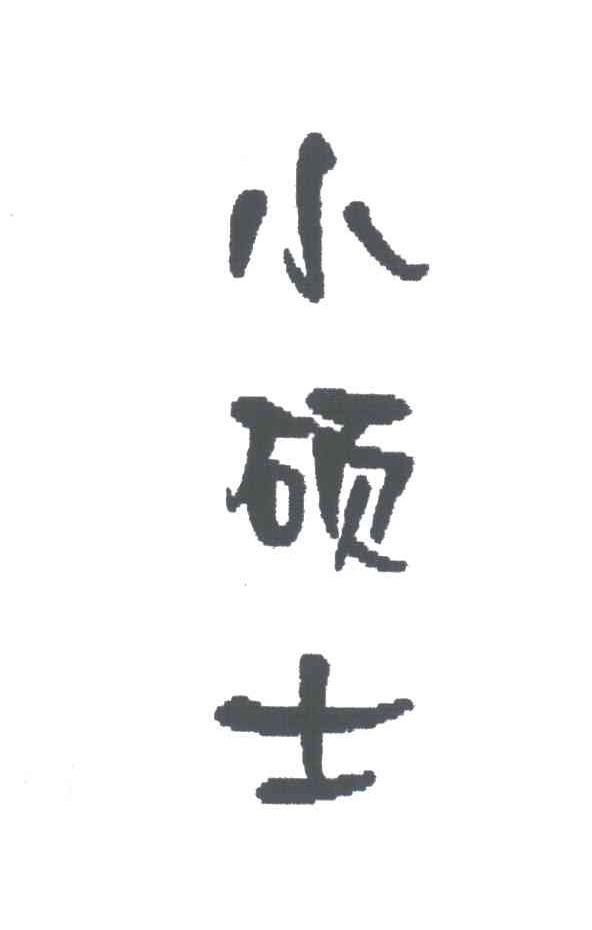 小硕士